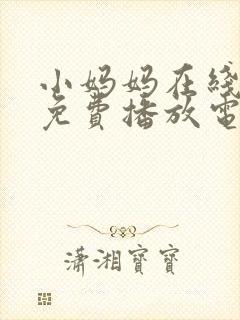 小妈妈在线
免费播放电
潇湘宝宝